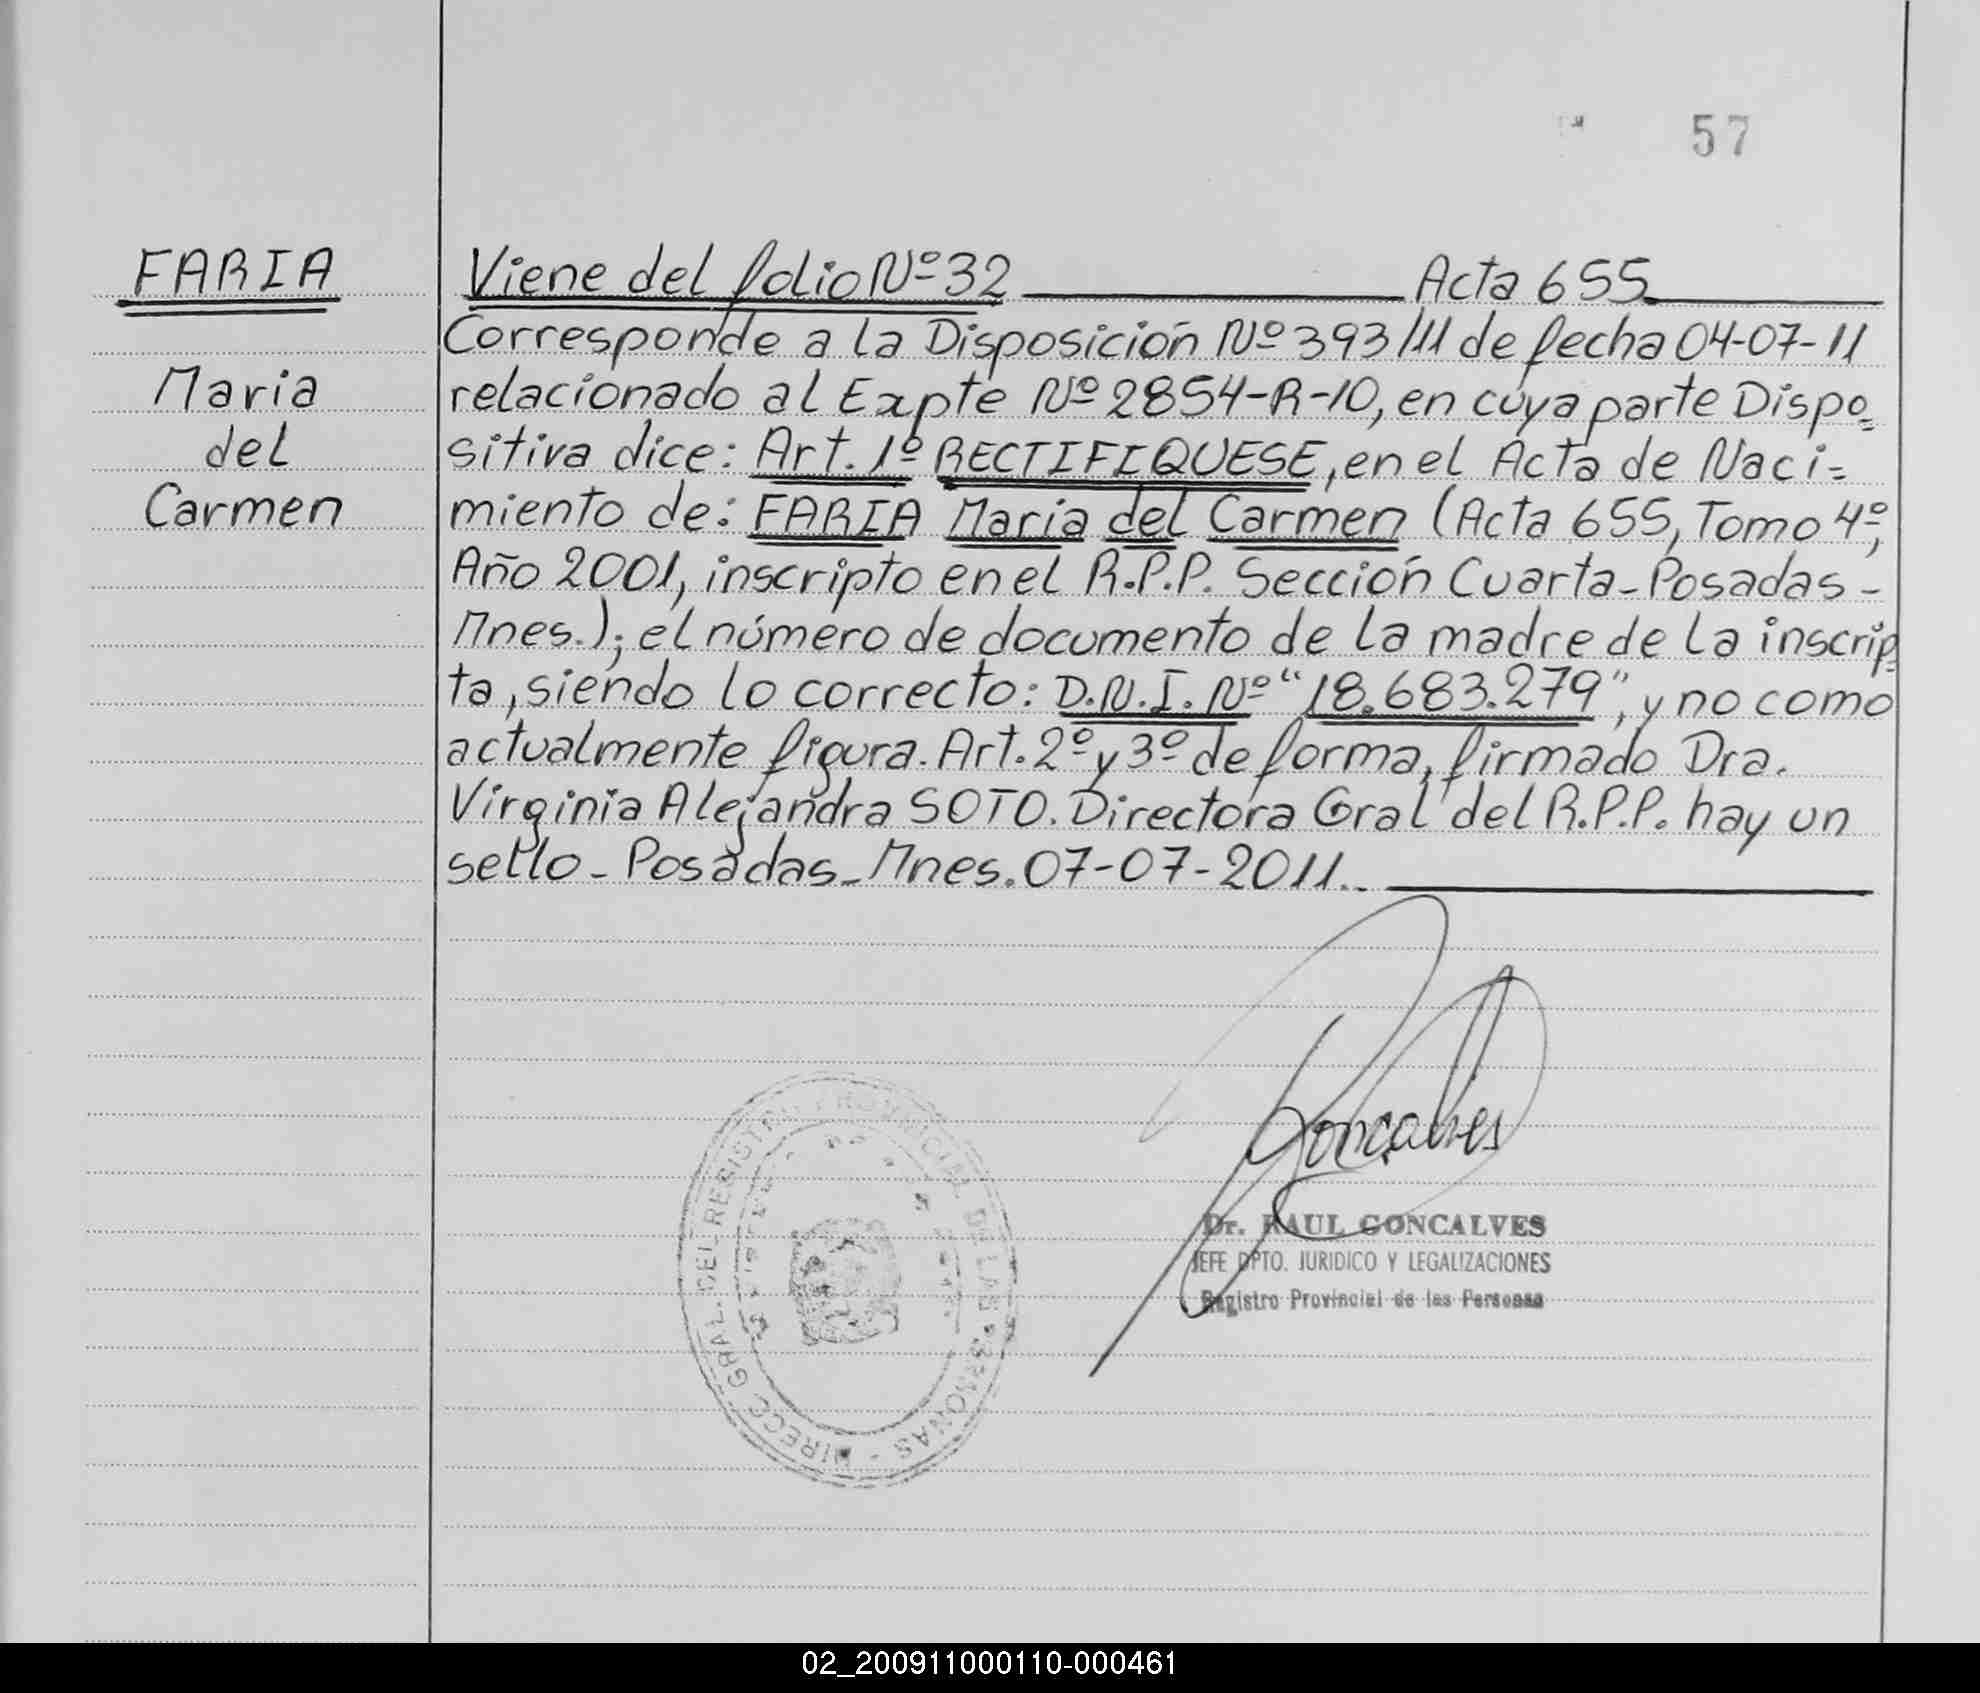 57
FARIA
Maria
del
Carmen
Viene del folio Nº 32 Acta 655
Corresponde a la Disposición Nº 393/11 de fecha 04-07-11
relacionado al Expte Nº 2854-R-10, en cuya parte Dispo=
sitiva dice: Art. 1º RECTIFIQUESE, en el Acta de Naci=
miento de: FARIA Maria del Carmen (Acta 655, Tomo 4º,
Año 2001, inscripto en el R.P.P. Sección Cuarta-Posadas-
Mnes.); el número de documento de la madre de la inscrip=
ta, siendo lo correcto: D.N.I. Nº "18.683.279", y no como
actualmente figura. Art. 2º y 3º de forma, firmado Dra.
Virginia Alejandra SOTO. Directora Gral del R.P.P. hay un
sello- Posadas-Mnes. 07-07-2011.-
Goncalves
Dr. RAUL GONCALVES
JEFE DPTO. JURIDICO Y LEGALIZACIONES
Registro Provincial de las Personas
DIRECC. GRAL. DEL REGISTRO PROVINCIAL DE LAS PERSONAS -
02_200911000110-000461